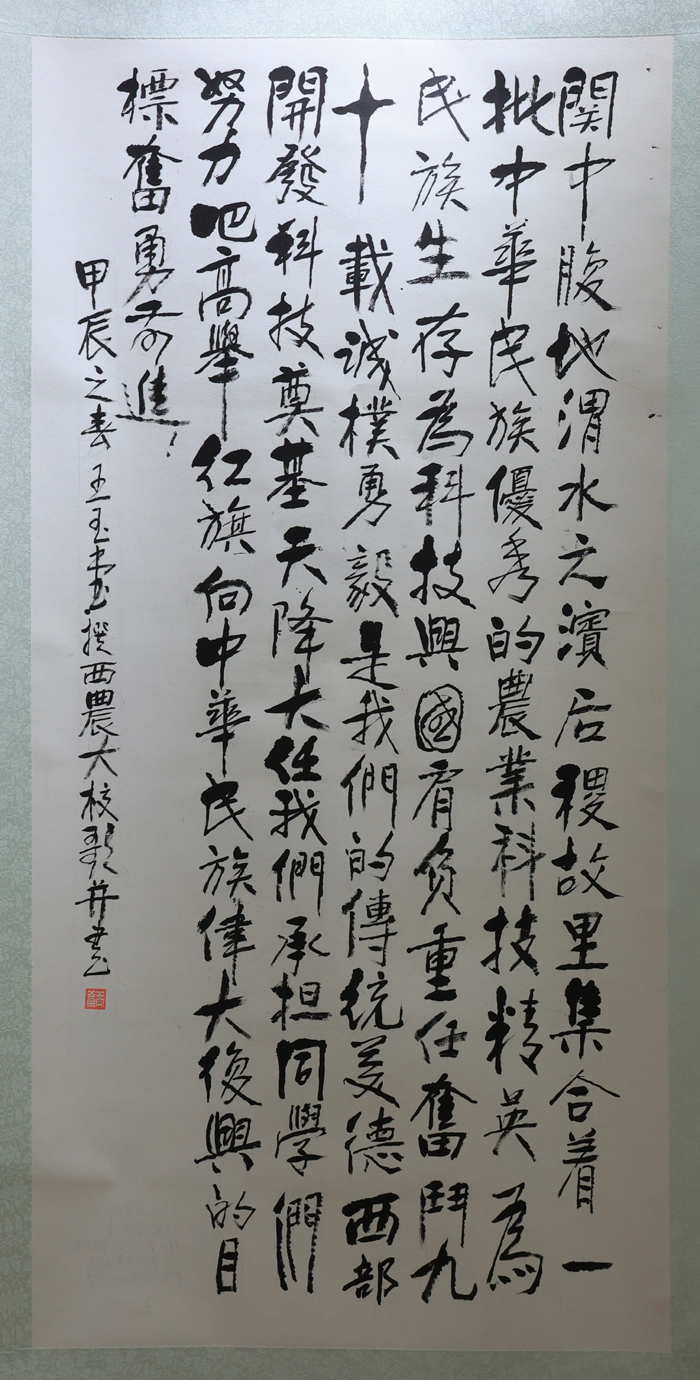 関中腹地渭水之濱后稷故里集合着一
批中華民族優秀的農業科技精英為
民族生存為科技興國肩負重任奮鬥九
十載誠樸勇毅是我們的傳統美德西部
開發科技奠基天降大任我們承担同學們
努力吧高舉红旗向中華民族偉大復興的目
標奮勇前進！
甲辰之春王玉撰西農大校歌并書